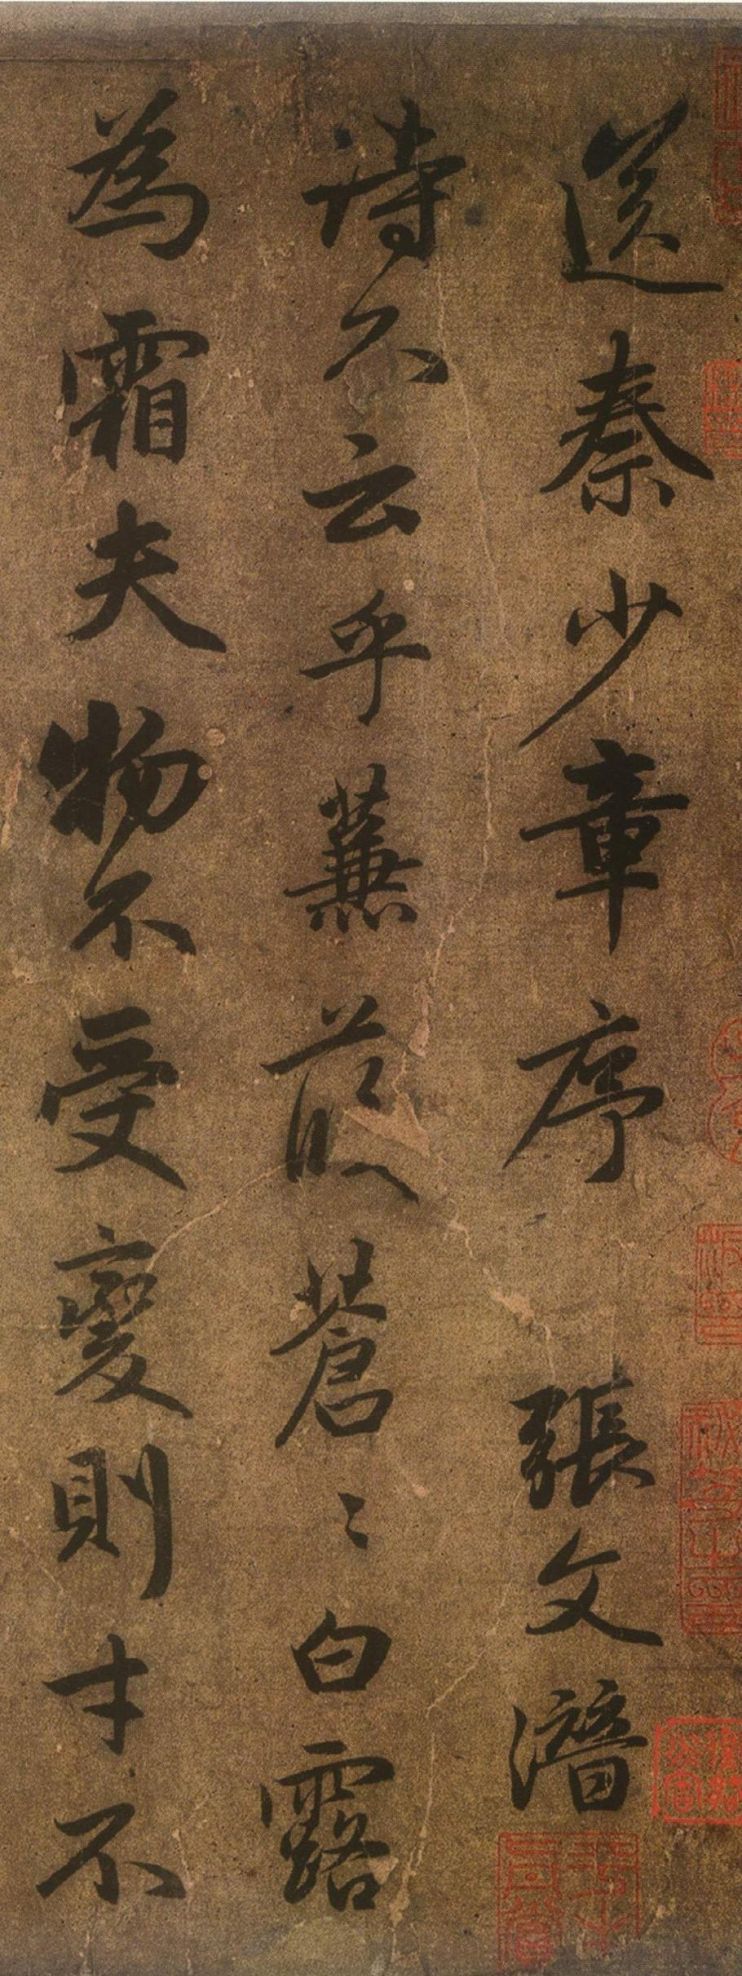 送秦少章序 張文潛
詩不云乎蒹葭蒼〻白露
為霜夫物不受變則才不